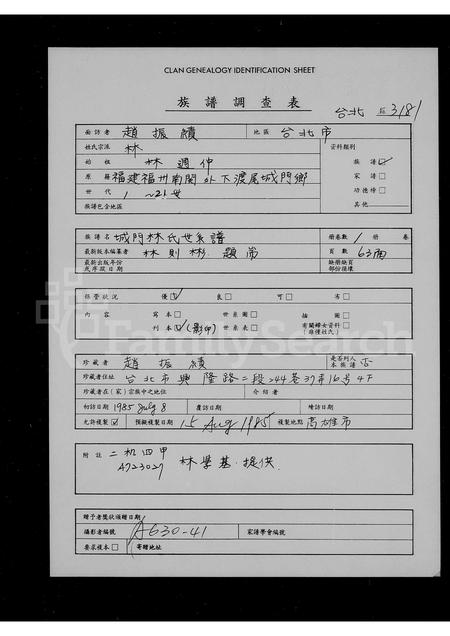 CLAN GENEALOGY IDENTIFICATION SHEET
族譜調查表
台北 3181
面訪者 趙振績 地區 台北市
姓氏宗派 林 資料類別
始祖 林週仲 族譜 ✓
原籍 福建福州南關外下渡尾城門鄉 家譜 □
世代 1 ~21世 功德榜 □
族譜包含地區 其他
族譜名 城門林氏世系譜 冊卷數 1 冊 卷
最新版本編纂者 林則彬 題簽 頁數 63面
最新出版年份或序跋日期 缺冊缺頁部份損壞
保管狀況 優 ✓ 良 □ 可 □ 布 □
內容 寫本 □ 世系圖 □ 插圖 □
刊本 ✓ (影印) 世系表 □ 有關婦女資料 □ (非僅姓氏)
FamilySearch
珍藏者 趙振績 是否列入本族譜 否
珍藏者住址 台北市興隆路二段244巷37弄16号4F
珍藏者在(家)宗族中之地位 介紹者
初訪日期 1985 July 8 覆訪日期 續訪日期
允許複製 ✓ 預擬複製日期 15 Aug 1985 複製地點 高雄市
附註 二机四甲
A723027 林學基 提供.
贈予者獎狀頒贈日期
攝影者編號 A630-41 家譜學會編號
要求複本 □ 寄贈地址